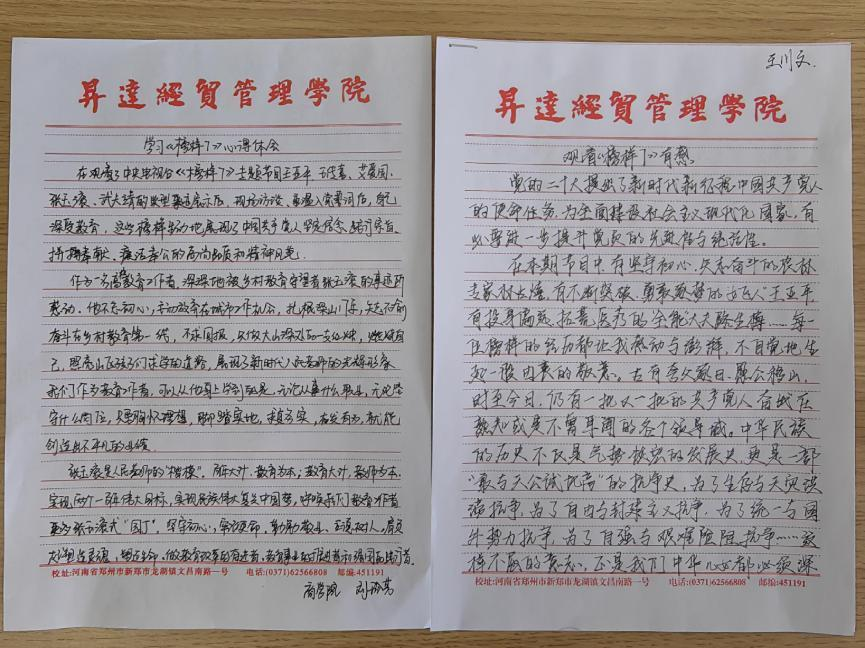 昇達經貿管理學院
学习《榜样7》心得体会
在观看了中央电视台《榜样7》主题节目王亚平、艾爱国、
张玉滚、武大靖的典型事迹展示后,现场访谈、重温入党誓词后,自己
深受教育,这些榜样生动地展现了中国共产党人坚定信念、践行宗旨、
拼搏奉献、廉洁奉公的高尚品质和精神风范。
作为一名高教育工作者,深深地被乡村教育守望者张玉滚的事迹所
感动。他不忘初心,主动放弃在城市工作机会,扎根深山门,矢志不渝
奋斗在乡村教育第一线,不求回报,只做大山深处的一支红烛,燃烧自
己,照亮山区孩子们求学的道路,展现了新时代人民教师的光辉形象
我们作为教育工作者,可以从他身上学到的是,无论从事什么职业,无论坚
守什么岗位,只要胸怀理想,脚踏实地,真抓实,有所为,就能
创造出不平凡的业绩。
张玉滚是人民教师的“楷模”。百年大计,教育为本;教育大计,教师为本。
实现两个一百年伟大目标,实现民族伟大复兴中国梦,呼唤我们教育工作者
更多张玉滚式“园丁”。坚守初心,牢记使命,勤勤敬业,立德树人,肩负
校址:河南省郑州市新郑市龙湖镇文昌南路一号 电话:(0371)62566808 邮编:451191
商学院
王川文
昇達經貿管理學院
观看《榜样7》有感
党的二十大提出了新时代新征程中国共产党人
的使命任务,为全面建设社会主义现代化国家,有
必要进一步提升党员的先进性与纯洁性。
在本期节目中,有坚守初心、矢志奋斗的农林
专家林占熺,有不断突破、勇敢追梦的女飞人王亚平,
有投身高原、招亮医疗的全能大夫陆生博……每一
位榜样的经历都让我感动与澎湃,不自觉地生
起一股由衷的敬意。古有夸父逐日、愚公移山,
时至今日,仍有一批又一批的共产党人奋战在
熟知或是不曾耳闻的各个领域。中华民族
的历史不仅是气势恢宏的发展史,更是一部
“敢与天公试比高”的抗争史,为了生存与天灾洪
涝抗争,为了自由与封建主义抗争,为了统一与国
外势力抗争,为了自强与艰难险阻抗争……这
样不屈的意志,正是我们中华儿女都必须深
校址:河南省郑州市新郑市龙湖镇文昌南路一号 电话:(0371)62566808 邮编:451191